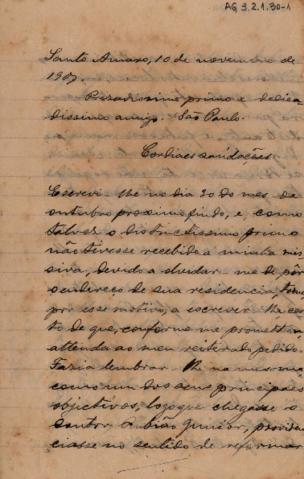 AG 3.2.1.30-1
Santo Amaro, 10 de novembro de
1907.
Presadissimo primo e dedica
dissimo amigo. São Paulo.
Cordiaes saudações.
Escrevi-lhe no dia 20 do mes de
outubro proximo findo, e, como
talvez o distinctissimo primo
não tivesse recebido a minha mis
siva, devido a olvidar-me de pôr
o endereço de sua residencia, torno
por esse motivo, a escrever-lhe
to de que, conforme me prometteu
attenda ao meu reiterado pedido.
Faria lembrar-lhe na mesma,
como um dos seus principaes
objectivos, logo que chegasse o
doutor Julião Junior, providen
ciasse no sentido de reformar